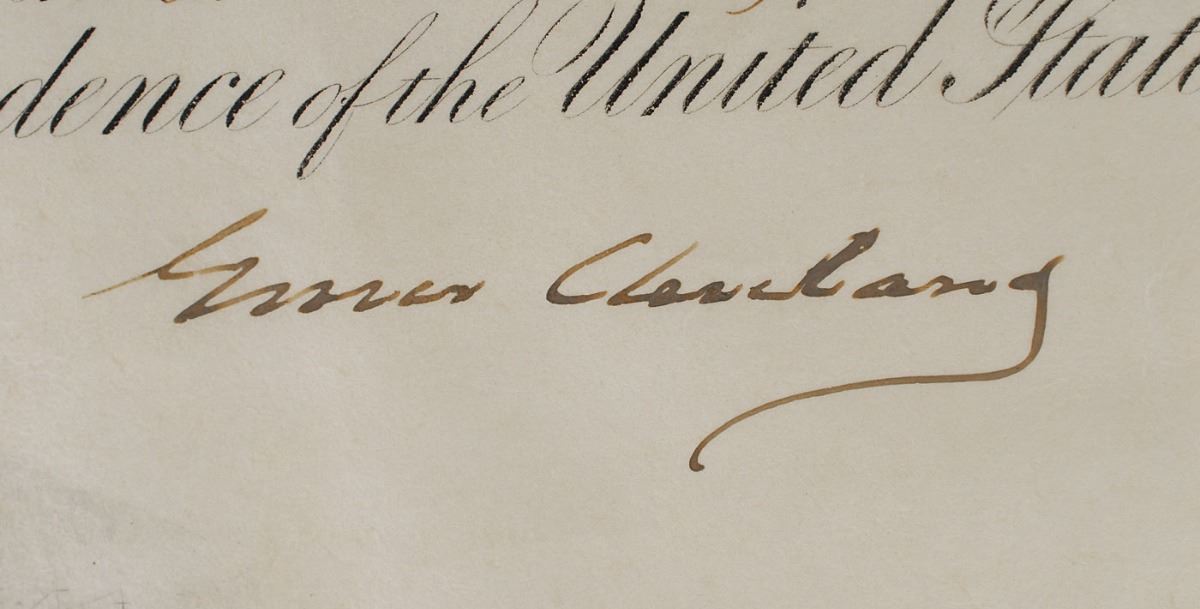 dence of the United State
Grover Cleveland